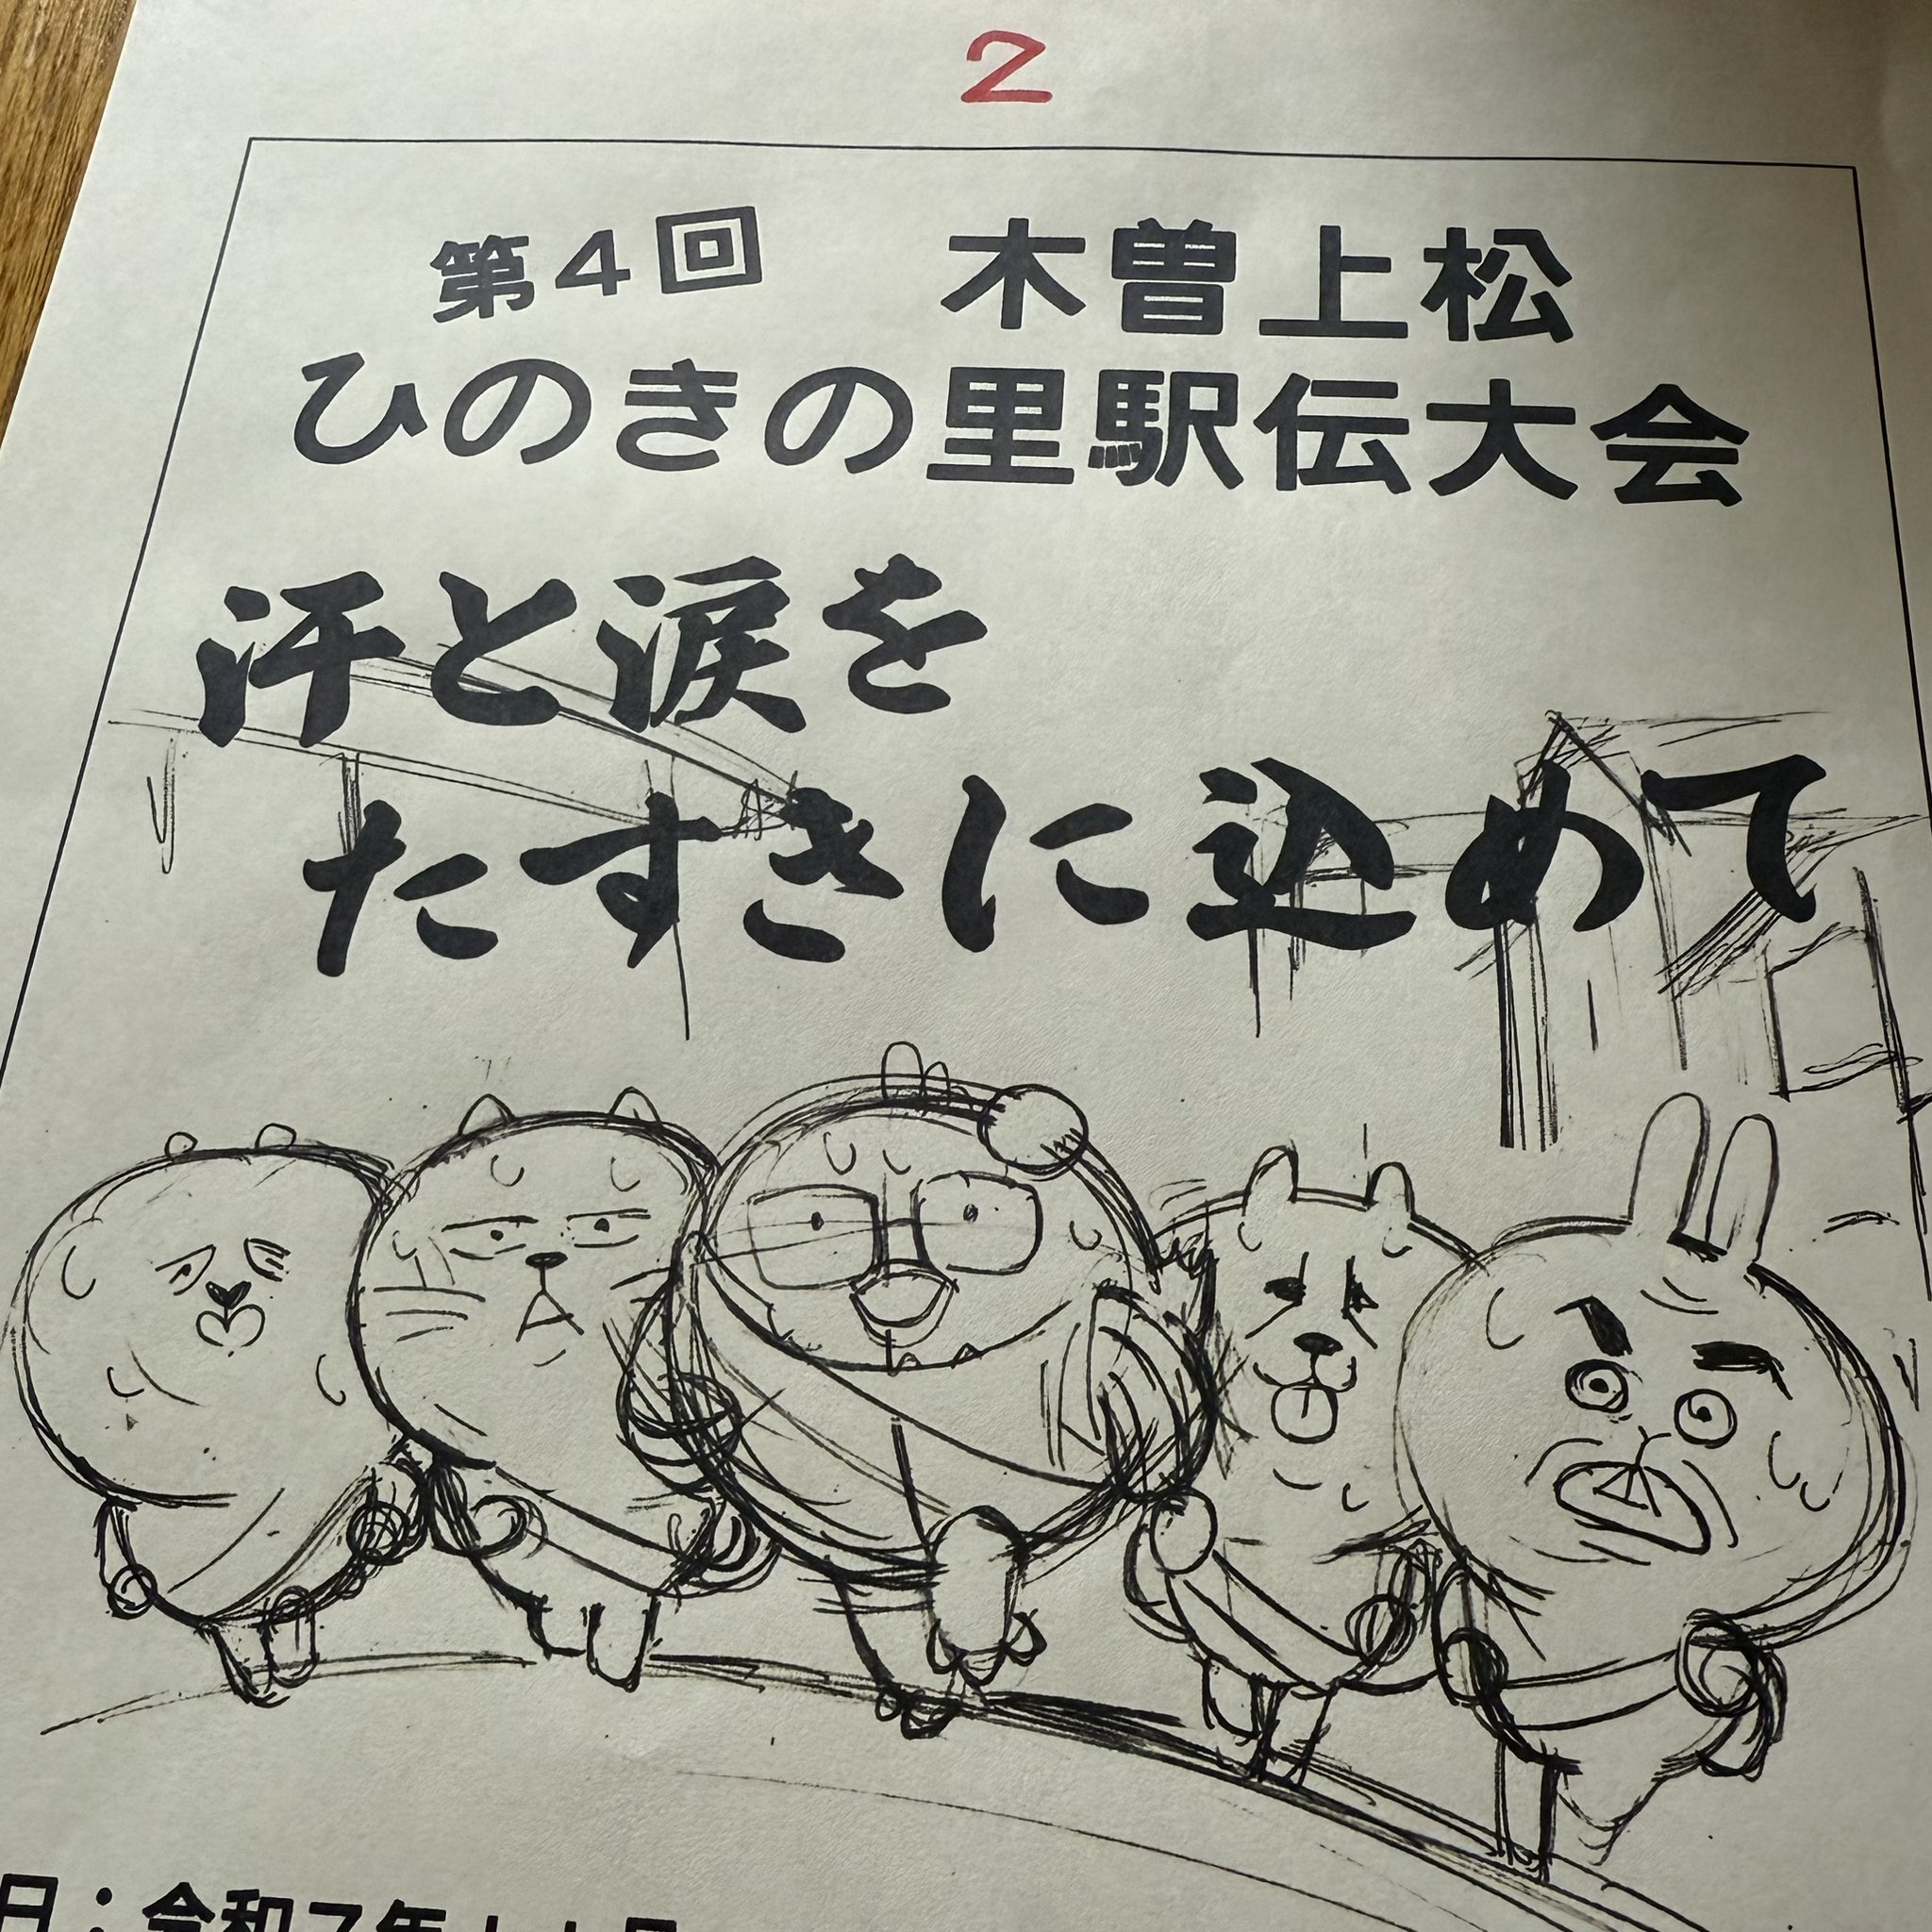 2
第4回 木曽上松
ひのきの里駅伝大会
汗と涙を
たすきに込めて
日：令和7年11月